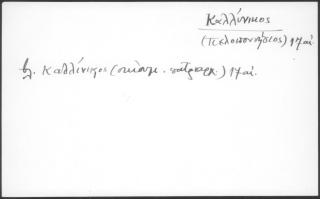 Καλλίνικος
(Πελοποννήσιος) 17 αἰ.
βλ. Καλλίνικος (οἰκουμ. πατριαρχ.) 17 αἰ.